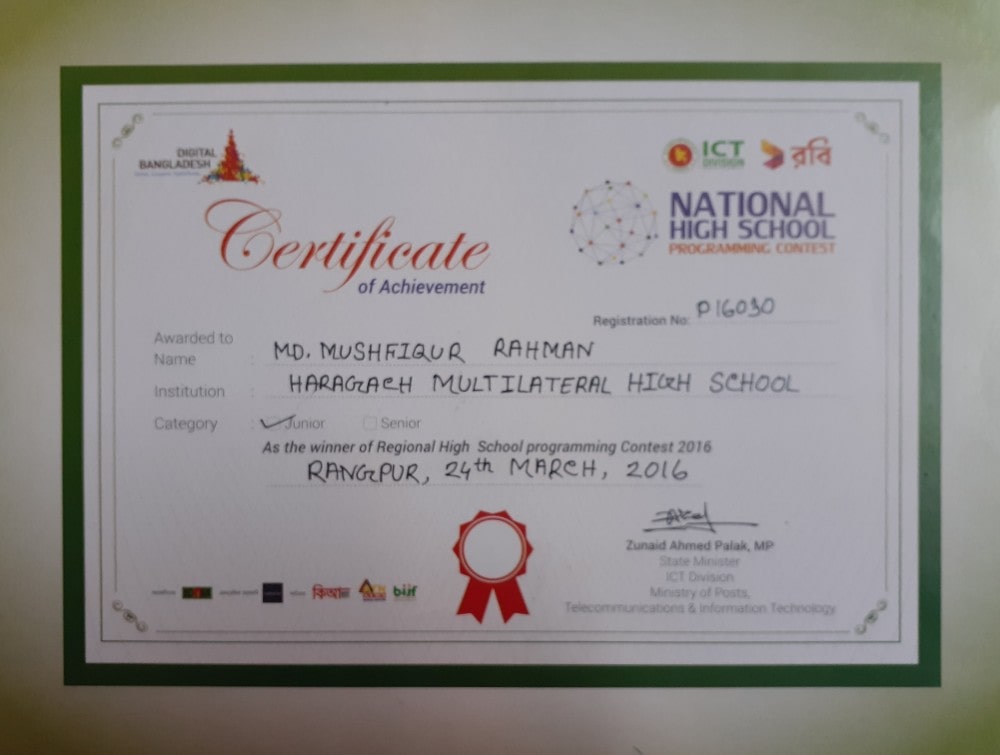 DIGITAL
BANGLADESH
ICT
DIVISION
রবি
NATIONAL
HIGH SCHOOL
PROGRAMMING CONTEST
Certificate
of Achievement
Registration No: P16030
Awarded to
Name : MD. MUSHFIQUR RAHMAN
Institution : HARAGACH MULTILATERAL HIGH SCHOOL
Category : Junior Senior
As the winner of Regional High School programming Contest 2016
RANGPUR, 24th MARCH, 2016
Zunaid Ahmed Palak, MP
State Minister
ICT Division
Ministry of Posts,
Telecommunications & Information Technology
কিআ
bijf